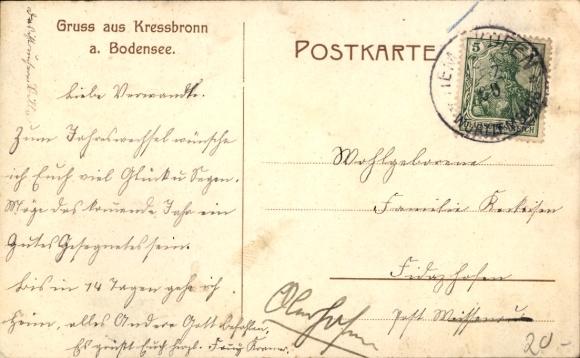 Gruss aus Kressbronn
a. Bodensee.
POSTKARTE
5
Liebe Verwandte.
Zum Jahreswechsel wünsche
ich Euch viel Glück u Segen.
Möge das kommende Jahr ein
Gutes Gesegnetes sein.
bis in 14 Tagen gehe ich
heim, alles Andere Gott befohlen,
Es grüsst Euch herzl.
Wohlgeborene
Familie
Fidazhofen
Post
Oberhofen
20-